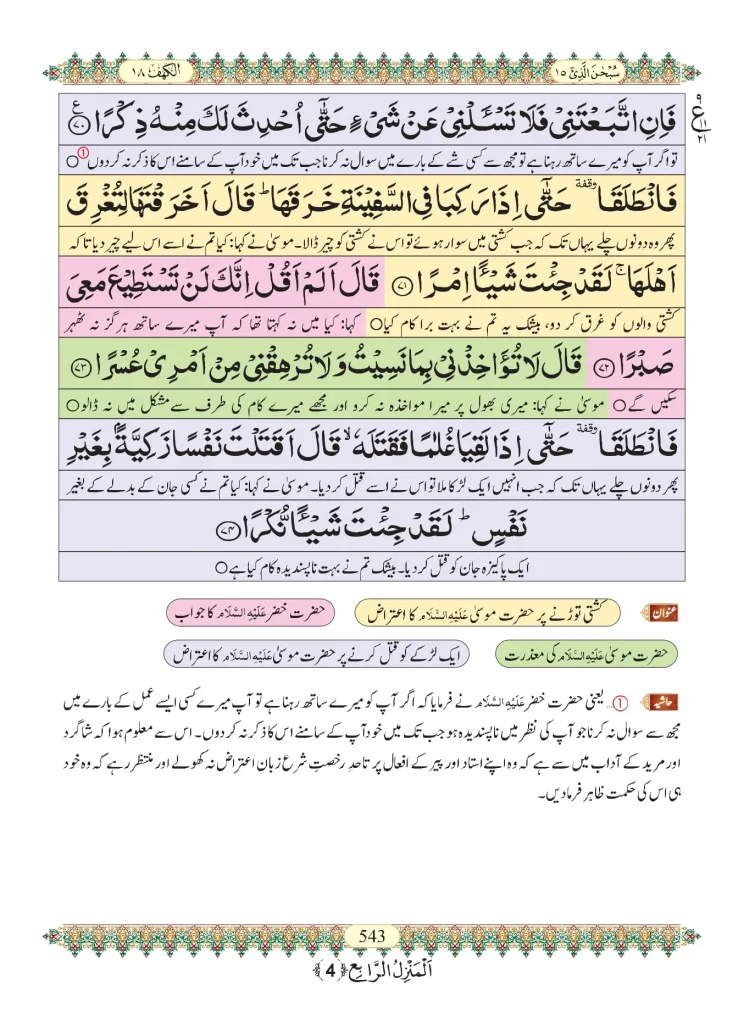 سُبْحٰنَ الَّذِیْۤ ۱۵
الکہف ۱۸
فَاِنِ اتَّبَعْتَنِیْ فَلَا تَسْـَٔلْنِیْ عَنْ شَیْءٍ حَتّٰۤى اُحْدِثَ لَكَ مِنْهُ ذِكْرًا ﴿۷۰﴾ ع
تو اگر آپ کو میرے ساتھ رہنا ہے تو مجھ سے کسی شے کے بارے میں سوال نہ کرنا جب تک میں خود آپ کے سامنے اس کا ذکر نہ کردوں ① ○
فَانْطَلَقَا ٝ وقفة حَتّٰۤى اِذَا رَكِبَا فِی السَّفِیْنَةِ خَرَقَهَا ؕ قَالَ اَخَرَقْتَهَا لِتُغْرِقَ
پھر وہ دونوں چلے یہاں تک کہ جب کشتی میں سوار ہوئے تو اس نے کشتی کو چیر ڈالا۔ موسیٰ نے کہا: کیا تم نے اسے اس لیے چیر دیا تا کہ
اَهْلَهَا ۚ لَقَدْ جِئْتَ شَیْـًٔا اِمْرًا ﴿۷۱﴾ قَالَ اَلَمْ اَقُلْ اِنَّكَ لَنْ تَسْتَطِیْعَ مَعِیَ
کشتی والوں کو غرق کر دو، بیشک یہ تم نے بہت برا کام کیا ○ کہا: کیا میں نہ کہتا تھا کہ آپ میرے ساتھ ہرگز نہ ٹھہر
صَبْرًا ﴿۷۲﴾ قَالَ لَا تُؤَاخِذْنِیْ بِمَا نَسِیْتُ وَ لَا تُرْهِقْنِیْ مِنْ اَمْرِیْ عُسْرًا ﴿۷۳﴾
سکیں گے ○ موسیٰ نے کہا: میری بھول پر میرا مواخذہ نہ کرو اور مجھے میرے کام کی طرف سے مشکل میں نہ ڈالو ○
فَانْطَلَقَا ٝ وقفة حَتّٰۤى اِذَا لَقِیَا غُلٰمًا فَقَتَلَهٗ ۙ قَالَ اَقَتَلْتَ نَفْسًا زَكِیَّةًۢ بِغَیْرِ
پھر دونوں چلے یہاں تک کہ جب انہیں ایک لڑکا ملا تو اس نے اسے قتل کر دیا۔ موسیٰ نے کہا: کیا تم نے کسی جان کے بدلے کے بغیر
نَفْسٍ ؕ لَقَدْ جِئْتَ شَیْـًٔا نُّكْرًا ﴿۷۴﴾
ایک پاکیزہ جان کو قتل کر دیا۔ بیشک تم نے بہت ناپسندیدہ کام کیا ہے ○
عنوان کشتی توڑنے پر حضرت موسیٰ عَلَیْهِ السَّلَام کا اعتراض حضرت خضر عَلَیْهِ السَّلَام کا جواب
حضرت موسیٰ عَلَیْهِ السَّلَام کی معذرت ایک لڑکے کو قتل کرنے پر حضرت موسیٰ عَلَیْهِ السَّلَام کا اعتراض
حاشیہ ①... یعنی حضرت خضر عَلَیْهِ السَّلَام نے فرمایا کہ اگر آپ کو میرے ساتھ رہنا ہے تو آپ میرے کسی ایسے عمل کے بارے میں
مجھ سے سوال نہ کرنا جو آپ کی نظر میں ناپسندیدہ ہو جب تک میں خود آپ کے سامنے اس کا ذکر نہ کردوں۔ اس سے معلوم ہوا کہ شاگرد
اور مرید کے آداب میں سے ہے کہ وہ اپنے استاد اور پیر کے افعال پر تاحدِ رخصتِ شرع زبانِ اعتراض نہ کھولے اور منتظر رہے کہ وہ خود
ہی اس کی حکمت ظاہر فرمادیں۔
543
اَلْمَنْزِلُ الرَّابِع ﴿4﴾